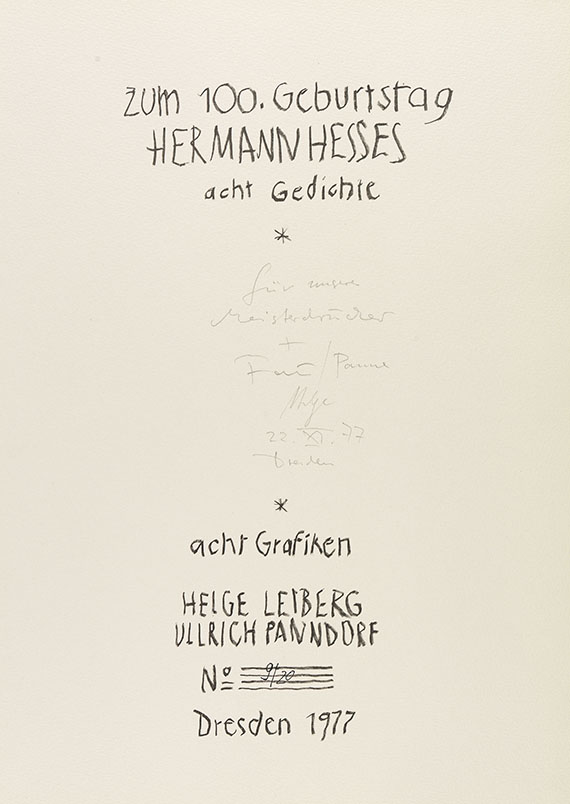 zum 100. Geburtstag
HERMANN HESSES
acht Gedichte
*
für unsere
Meisterdrucker
+
Helge
22. XI. 77
Dresden
*
acht Grafiken
HELGE LEIBERG
ULLRICH PANNDORF
No 9/20
Dresden 1977